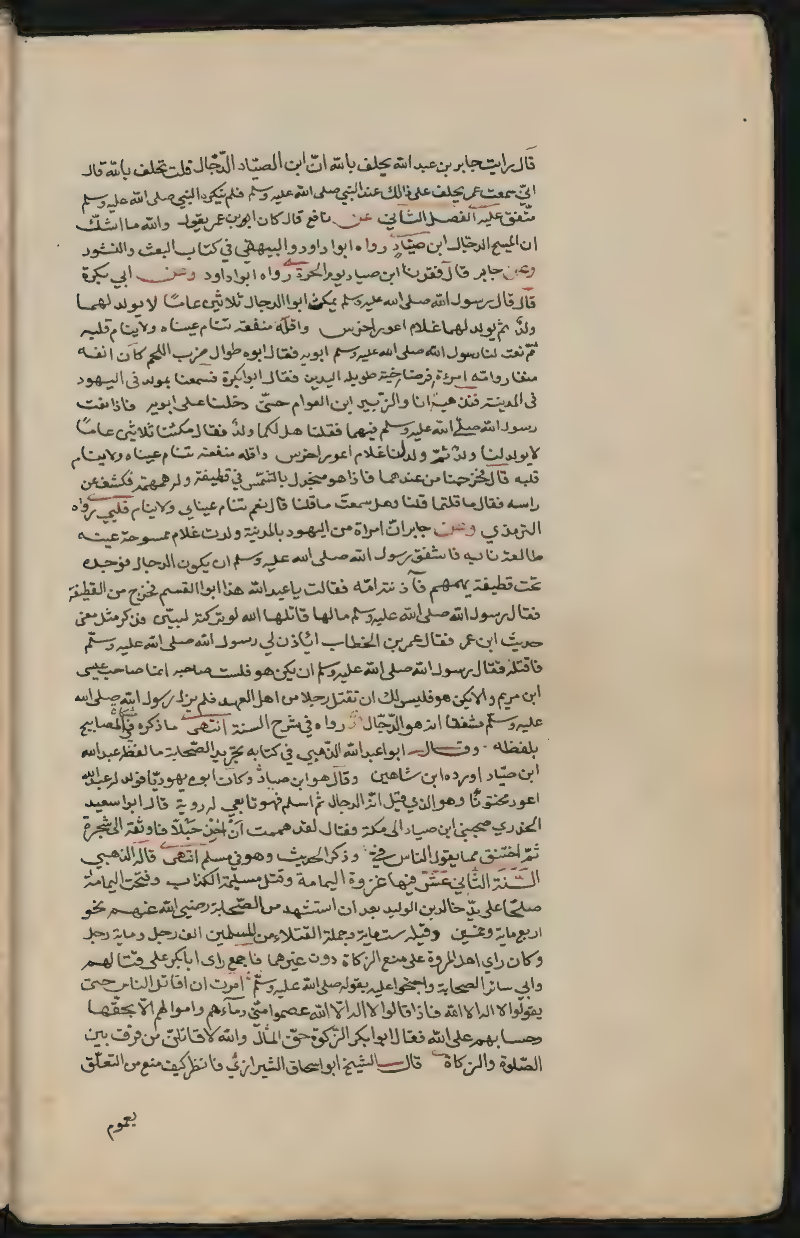 قال رايت جابر بن عبد الله يحلف بالله ان ابن الصياد الدجال قلت تحلف بالله قال
اني سمعت عمر يحلف على ذالك عند النبي صلى الله عليه وسلم فلم ينكره النبي صلى الله عليه وسلم
متفق عليه الفصل الثاني عن نافع قال كان ابن عمر يقول والله ما اشك
ان المسيح الدجال ابن صياد رواه ابوا داود والبيهقي في كتاب البعث والنشور
وعن جابر قال فقدنا ابن صياد يوم الحرة رواه ابوا داود وعن ابي بكرة
قال قال رسول الله صلى الله عليه وسلم يمكث ابوا الدجال ثلاثين عاما لا يولد لهما
ولد ثم يولد لهما غلام اعور اضرس واقله منفعة تنام عيناه ولا ينام قلبه
ثم نعت لنا رسول الله صلى الله عليه وسلم ابويه فقال ابوه طوال ضرب اللحم كان انفه
منقار وامه امرءة فرضاخية طويلة اليدين فقال ابوا بكرة فسمعنا بمولد في اليهود
في المدينة فذهبت انا والزبير ابن العوام حتى دخلنا على ابويه فاذا نعت
رسول الله صلى الله عليه وسلم فيهما فقلنا هل لكما ولد فقال مكثنا ثلاثين عاما
لا يولد لنا ولد ثم ولد لنا غلام اعور اضرس واقله منفعة تنام عيناه ولا ينام
قلبه قال فخرجنا من عندهما فاذا هو منجدل بالشمس في قطيفة وله همهمة فكشف عن
راسه فقال ما قلتما قلنا وهل سمعت ما قلنا قال نعم تنام عيناي ولا ينام قلبي رواه
الترمذي وعن جابر ان امراة من اليهود بالمدينة ولدت غلام ممسوحة عينه
طالعة نابه فاشفق رسول الله صلى الله عليه وسلم ان يكون الدجال فوجده
تحت قطيفة يهمهم فآذنته امه فقالت يا عبد الله هذا ابوا القسم فخرج من القطيفة
فقال رسول الله صلى الله عليه وسلم مالها قاتلها الله لو تركته لبين فذكر مثل معنى
حديث ابن عمر فقال عمر بن الخطاب ائذن لي رسول الله صلى الله عليه وسلم
فاقتله فقال رسول الله صلى الله عليه وسلم ان يكن هو فلست صاحبه انما صاحبه عيسى
ابن مريم والا يكن هو فليس لك ان تقتل رجلا من اهل العهد فلم يزل رسول الله صلى الله
عليه وسلم مشفقا انه هو الدجال رواه في شرح السنة انتهى ما ذكره في المصابيح
بلفظه وقال ابوا عبد الله الذهبي في كتابه تجريد الصحابة ما لفظه عبد الله
ابن صياد اورده ابن شاهين وقال هو ابن صياد وكان ابوه يهوديا فولد له عبد الله
اعور مختونا وهو الذي قيل انه الدجال ثم اسلم فهو تابعي له روية قال ابوا سعيد
الخدري صحبني ابن صياد الى مكة وفقال لقد هممت ان اخذ حبلا فاوثقه الى شجرة
ثم اختنق مما يقول الناس في وذكر الحديث وهو في مسلم انتهى قاله الذهبي
السنة الثاني عشر فيها غزوة اليمامة وقتل مسيلمة الكذاب وفتحت اليمامة
صلحا على يد خالد بن الوليد بعد ان استشهد من الصحابة رضي الله عنهم نحو
اربعماية وخمسين وقيل ستماية وجملة القتلاء من المسلمين الف رجل وماية رجل
وكان راي اهل الردة على منع الزكاة دون غيرهما فاجمع راى ابا بكر على قتالهم
وابى سائر الصحابة واحتجوا عليه بقوله صلى الله عليه وسلم امرت ان اقاتل الناس حتى
يقولوا لا اله الا الله فاذا قالوا لا اله الا الله عصموا مني دمآءهم واموالهم الا بحقها
وحسابهم على الله فقال ابوا بكر الزكوة حق المال والله لاقاتلن من فرق بين
الصلوة والزكاة قال الشيخ ابوا سحاق الشيرازي فانظر كيف منع من التعلق
بعموم